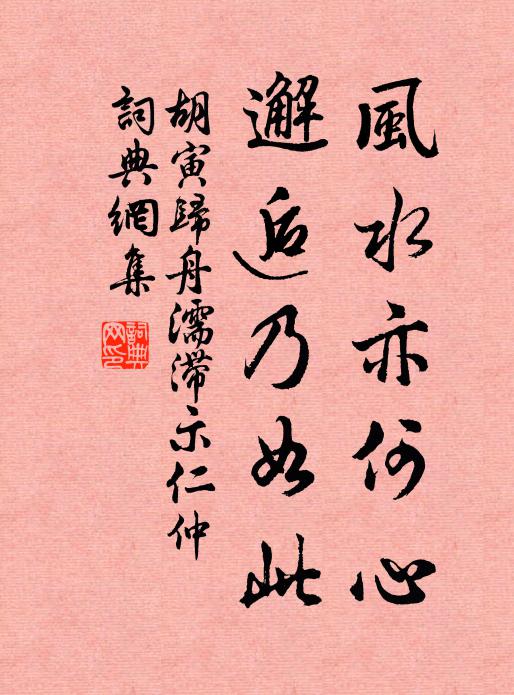 風水亦何心
邂逅乃如此
胡寅歸舟濡滯示仁仲
詞典網集
詞典網印